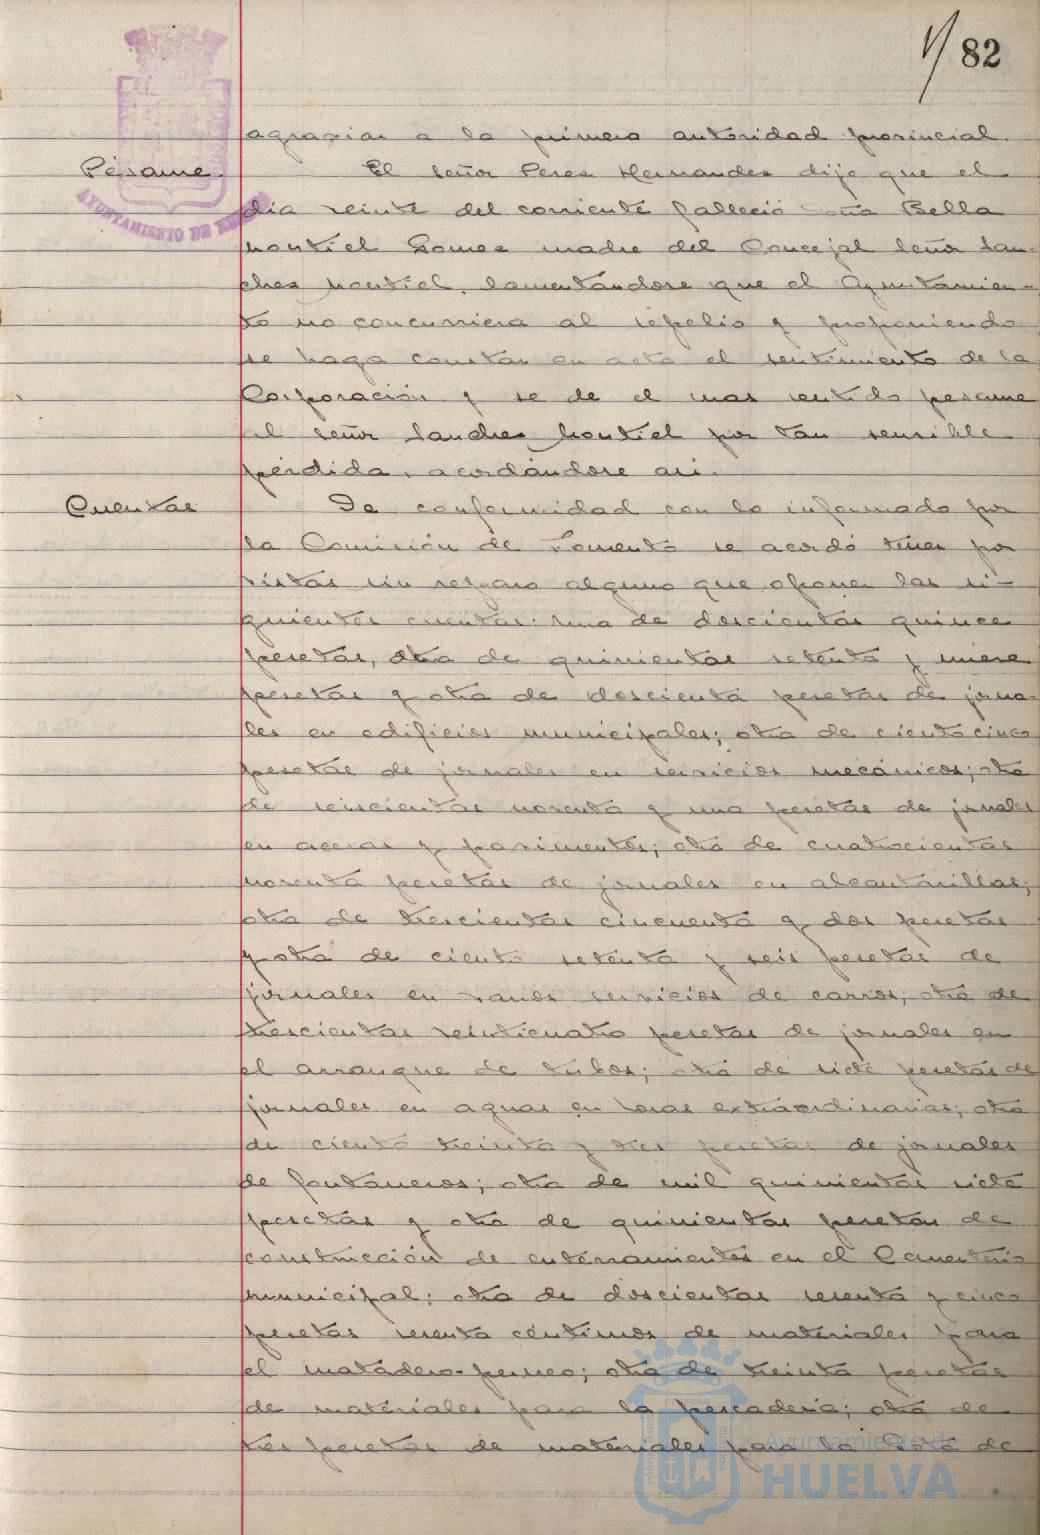 82
agraviar a la primera autoridad provincial.
Pésame.
El señor Perez Hernandez dijo que el
dia veinte del corriente falleció doña Bella
Montiel Gomez madre del Concejal señor San-
chez Montiel, lamentándose que el Ayuntamien-
to no concurriera al sepelio y proponiendo
se haga constar en acta el sentimiento de la
Corporación y se de el mas sentido pesame
al señor Sanchez Montiel por tan sensible
pérdida, acordándose asi.
Cuentas
De conformidad con lo informado por
la Comisión de Fomento se acordó tener por
vistas sin reparo alguno que oponer las si-
guientes cuentas: una de doscientas quince
pesetas, otra de quinientas setenta y nueve
pesetas y otra de doscienta pesetas de jorna-
les en edificios municipales; otra de ciento cinco
pesetas de jornales en servicios mecánicos; otra
de seiscientas noventa y una pesetas de jornales
en aceras y pavimentos; otra de cuatrocientas
noventa pesetas de jornales en alcantarillas;
otra de trescientas cincuenta y dos pesetas
y otra de ciento setenta y seis pesetas de
jornales en varios servicios de carros; otra de
trescientas veinticuatro pesetas de jornales en
el arranque de tubos; otra de siete pesetas de
jornales en aguas en horas extraordinarias; otra
de ciento treinta y tres pesetas de jornales
de fontaneros; otra de mil quinientas siete
pesetas y otra de quinientas pesetas de
construcción de enterramientos en el Cementerio
municipal; otra de doscientas sesenta y cinco
pesetas sesenta céntimos de materiales para
el matadero-perneo; otra de treinta pesetas
de materiales para la pescaderia; otra de
tres pesetas de materiales para la de
AYUNTAMIENTO DE
Ayuntamiento de
HUELVA